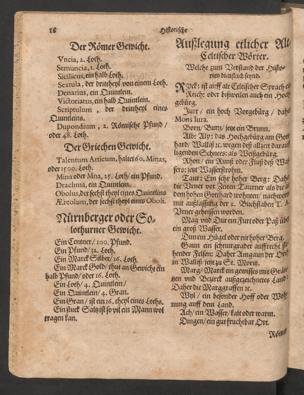 16 Historische
Der Römer Gewicht.
Vncia, 2. Loth.
Semuncia, 1. Loth.
Sicilicus, ein halb Loth.
Sextula, der dritheyl von einem Loth.
Denarius, ein Quintlein.
Victoriatus, ein halb Quintlein.
Scriptulum, der dritheyl eines
Quintleins.
Dupondium, 2. Römische Pfund/
oder 48. Loth.
Der Griechen Gewicht.
Talentum Atticum, haltet 60. Minas,
oder 1500. Loth.
Mina oder Mna, 25. Loth/ ein Pfund.
Drachma, ein Quintlein.
Obolus, der sechst theyl eines Quintlins
Æreolum, der sechst theyl eines Oboli.
Nürnberger oder So-
lothurner Gewicht.
Ein Centner/ 100. Pfund.
Ein Pfund/ 32. Loth.
Ein Marck Silber/ 16. Loth.
Ein Marck Gold/ thut an Gewicht ein
halb Pfund/ oder 16. Loth.
Ein Loth/ 4. Quintlein/
Ein Quintlein/ 4. Gran.
Ein Gran/ ist ein 16. theyl eines Loths.
Ein stuck Saltz ist so vil ein Mann wol
tragen kan.
Außlegung etlicher Alt
Celtischer Wörter.
Welche zum Verstand der Histo-
rien dienstlich seynd.
Rück: ist auff alt Celtischer Sprach ein
Reich: oder besonders auch ein Hoch
gebürg.
Jurt/ ein hoch Vorgebürg/ daher
Mons Jura.
Born/ Burn/ seye ein Brunn.
Alb: Alp: das Hochgebürg am Gott
hard: Wallis: &c. wegen deß allzeit darauff
ligenden Schnees: als Weißgebürg.
Rhon/ ein Runß oder Fluß deß Was-
sers: seye Wasserstrohm.
Taur: Ein sehr hohe Berg: Daher
die Vrner vor Zeiten Taurner als bey
dem hohen Gotthard wohnende: nachwerts
mit außlassung der 2. Buchstaben T. A.
Vrner geheissen worden.
Mag: vnd Dur ein Furt oder Paß über
ein groß Wasser.
Dun ein Hügel oder nit hoher Berg.
Gaun ein schnurgrader auffrecht ste-
hender Felsen: Daher Amgaun der Orth
in Wallis: seye zu St. Moritz.
Marg/ Marck ein gewisses mit Gräntz-
en vnd Bezirck außgezeichnetes Land:
Daher die Marggraffen &c.
Wyl/ ein besonder Hoff oder Woh-
nung auff dem Land.
Ach/ ein Wasser/ kalt oder warm.
Dingen/ ein gut fruchtbar Ort.